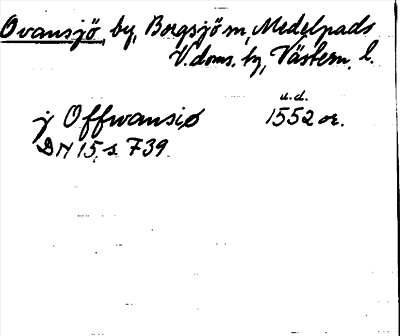 Ovansjö, by, Borgsjö sn, Medelpads
V. doms. hg, Västern. l.
u.d.
j Offwansiø 1552 or.
DN 15, s 739.